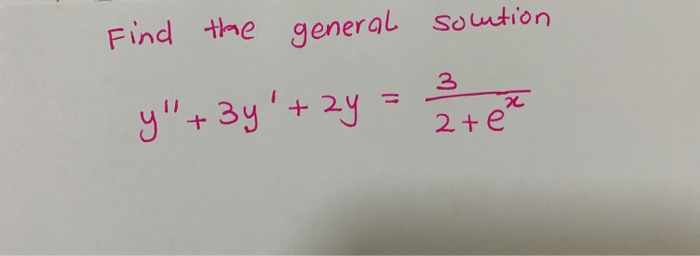 Find the general solution
y'' + 3y' + 2y = 3 / (2 + e^x)